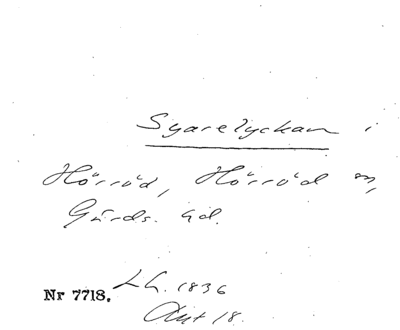 Syarelyckan i
Hörröd, Hörröd sn,
Gärds. hd.
Nr 7718. LA. 1836
Akt 18.